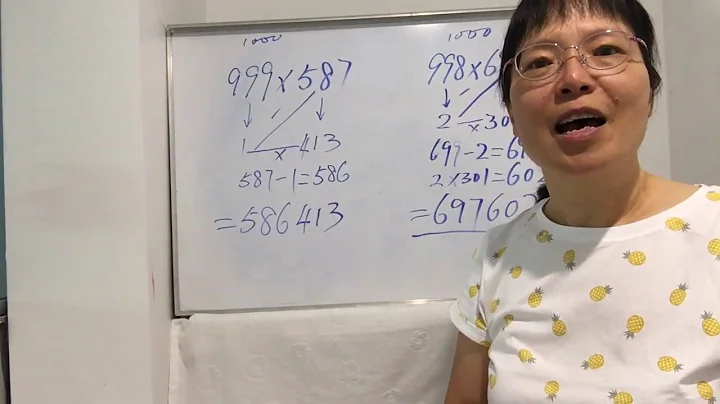 1000
999×587
1 × 413
587-1=586
=586413
1000
998×6
2 × 30
699-2=6
2×301=602
=69760